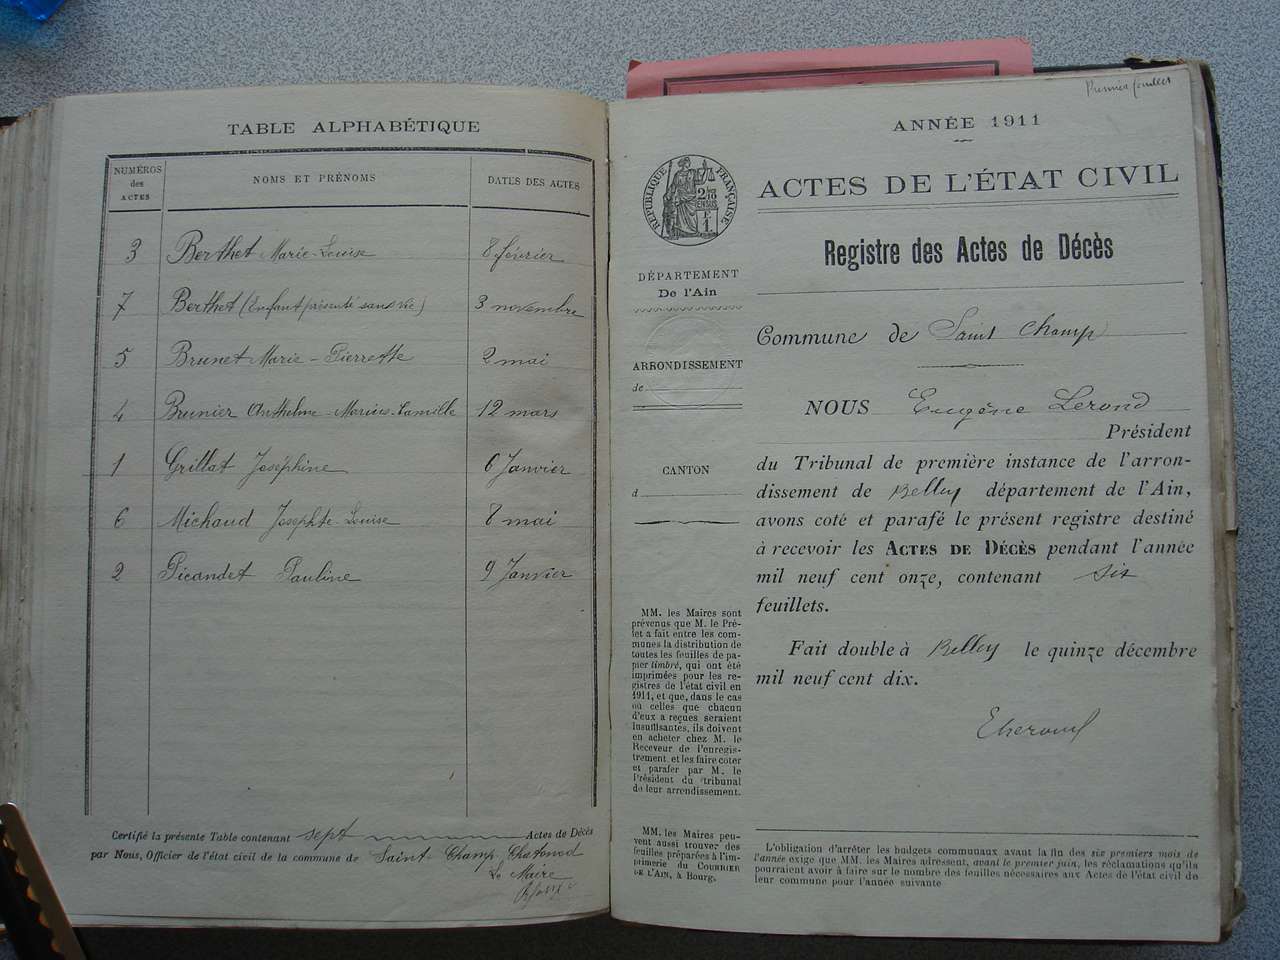 TABLE ALPHABÉTIQUE
NUMÉROS des ACTES
NOMS ET PRÉNOMS
DATES DES ACTES
3 Berthet Marie-Louise 8 février
7 Berthet (Enfant présenté sans vie) 3 novembre
5 Brunet Marie-Pierrette 2 mai
4 Brunier Anthelme-Marius-Camille 12 mars
1 Grillat Joséphine 6 Janvier
6 Michaud Josephte Louise 8 mai
2 Picandet Pauline 9 Janvier
Certifié la présente Table contenant sept Actes de Décès
par Nous, Officier de l'état civil de la commune de Saint-Champ-Chatonod
Le Maire
Premier feuillet
ANNÉE 1911
ACTES DE L'ÉTAT CIVIL
Registre des Actes de Décès
RÉPUBLIQUE FRANÇAISE
DÉPARTEMENT
De l'Ain
ARRONDISSEMENT
de
CANTON
d
Commune de Saint Champ
NOUS Eugène Lerond
Président
du Tribunal de première instance de l'arron-
dissement de Belley département de l'Ain,
avons coté et parafé le présent registre destiné
à recevoir les ACTES DE DÉCÈS pendant l'année
mil neuf cent onze, contenant six
feuillets.
Fait double à Belley le quinze décembre
mil neuf cent dix.
MM. les Maires sont
prévenus que M. le Pré-
fet a fait entre les com-
munes la distribution de
toutes les feuilles de pa-
pier timbré, qui ont été
imprimées pour les re-
gistres de l'état civil en
1911, et que, dans le cas
où celles que chacun
d'eux a reçues seraient
insuffisantes, ils doivent
en acheter chez M. le
Receveur de l'enregis-
trement, et les faire coter
et parafer par M. le
Président du tribunal
de leur arrondissement.
MM. les Maires peu-
vent aussi trouver des
feuilles préparées à l'im-
primerie du COURRIER
DE L'AIN, à Bourg.
L'obligation d'arrêter les budgets communaux avant la fin des six premiers mois de
l'année exige que MM. les Maires adressent, avant le premier juin, les réclamations qu'ils
pourraient avoir à faire sur le nombre des feuilles nécessaires aux Actes de l'état civil de
leur commune pour l'année suivante